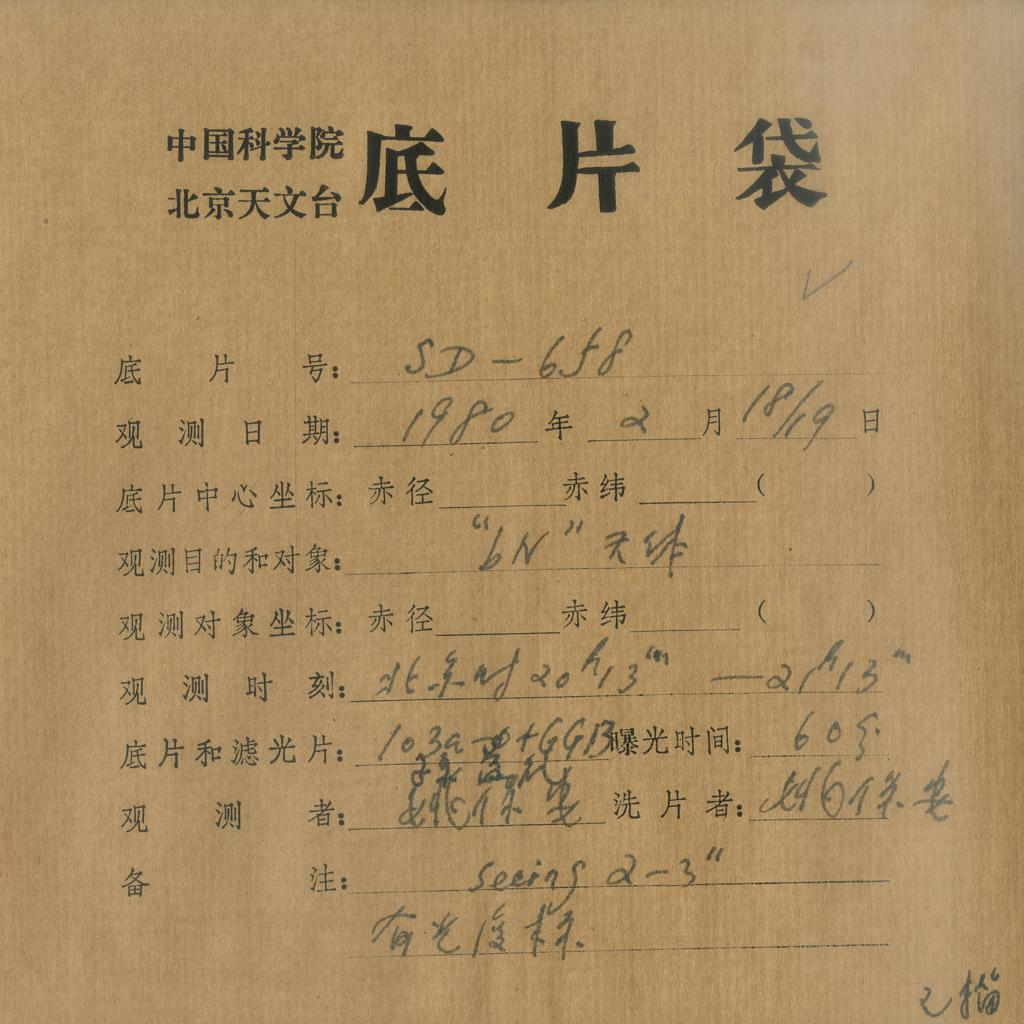 中国科学院
北京天文台 底片袋
底片号: SD-658
观测日期: 1980年2月18/19日
底片中心坐标: 赤径 赤纬 ( )
观测目的和对象: "bN"天体
观测对象坐标: 赤径 赤纬 ( )
观测时刻: 北京时20h13m —21h13m
底片和滤光片: 103a-O+GG13 曝光时间: 60分
观测者: 姚保安 洗片者: 姚保安
备注: Seeing 2-3"
有光度标
已描